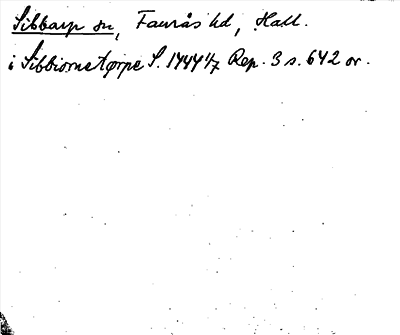 Sibbarp sn, Faurås hd, Hall.
i Sibbiornetorpe S. 1444 1/7 Rep. 3 s. 642 or.